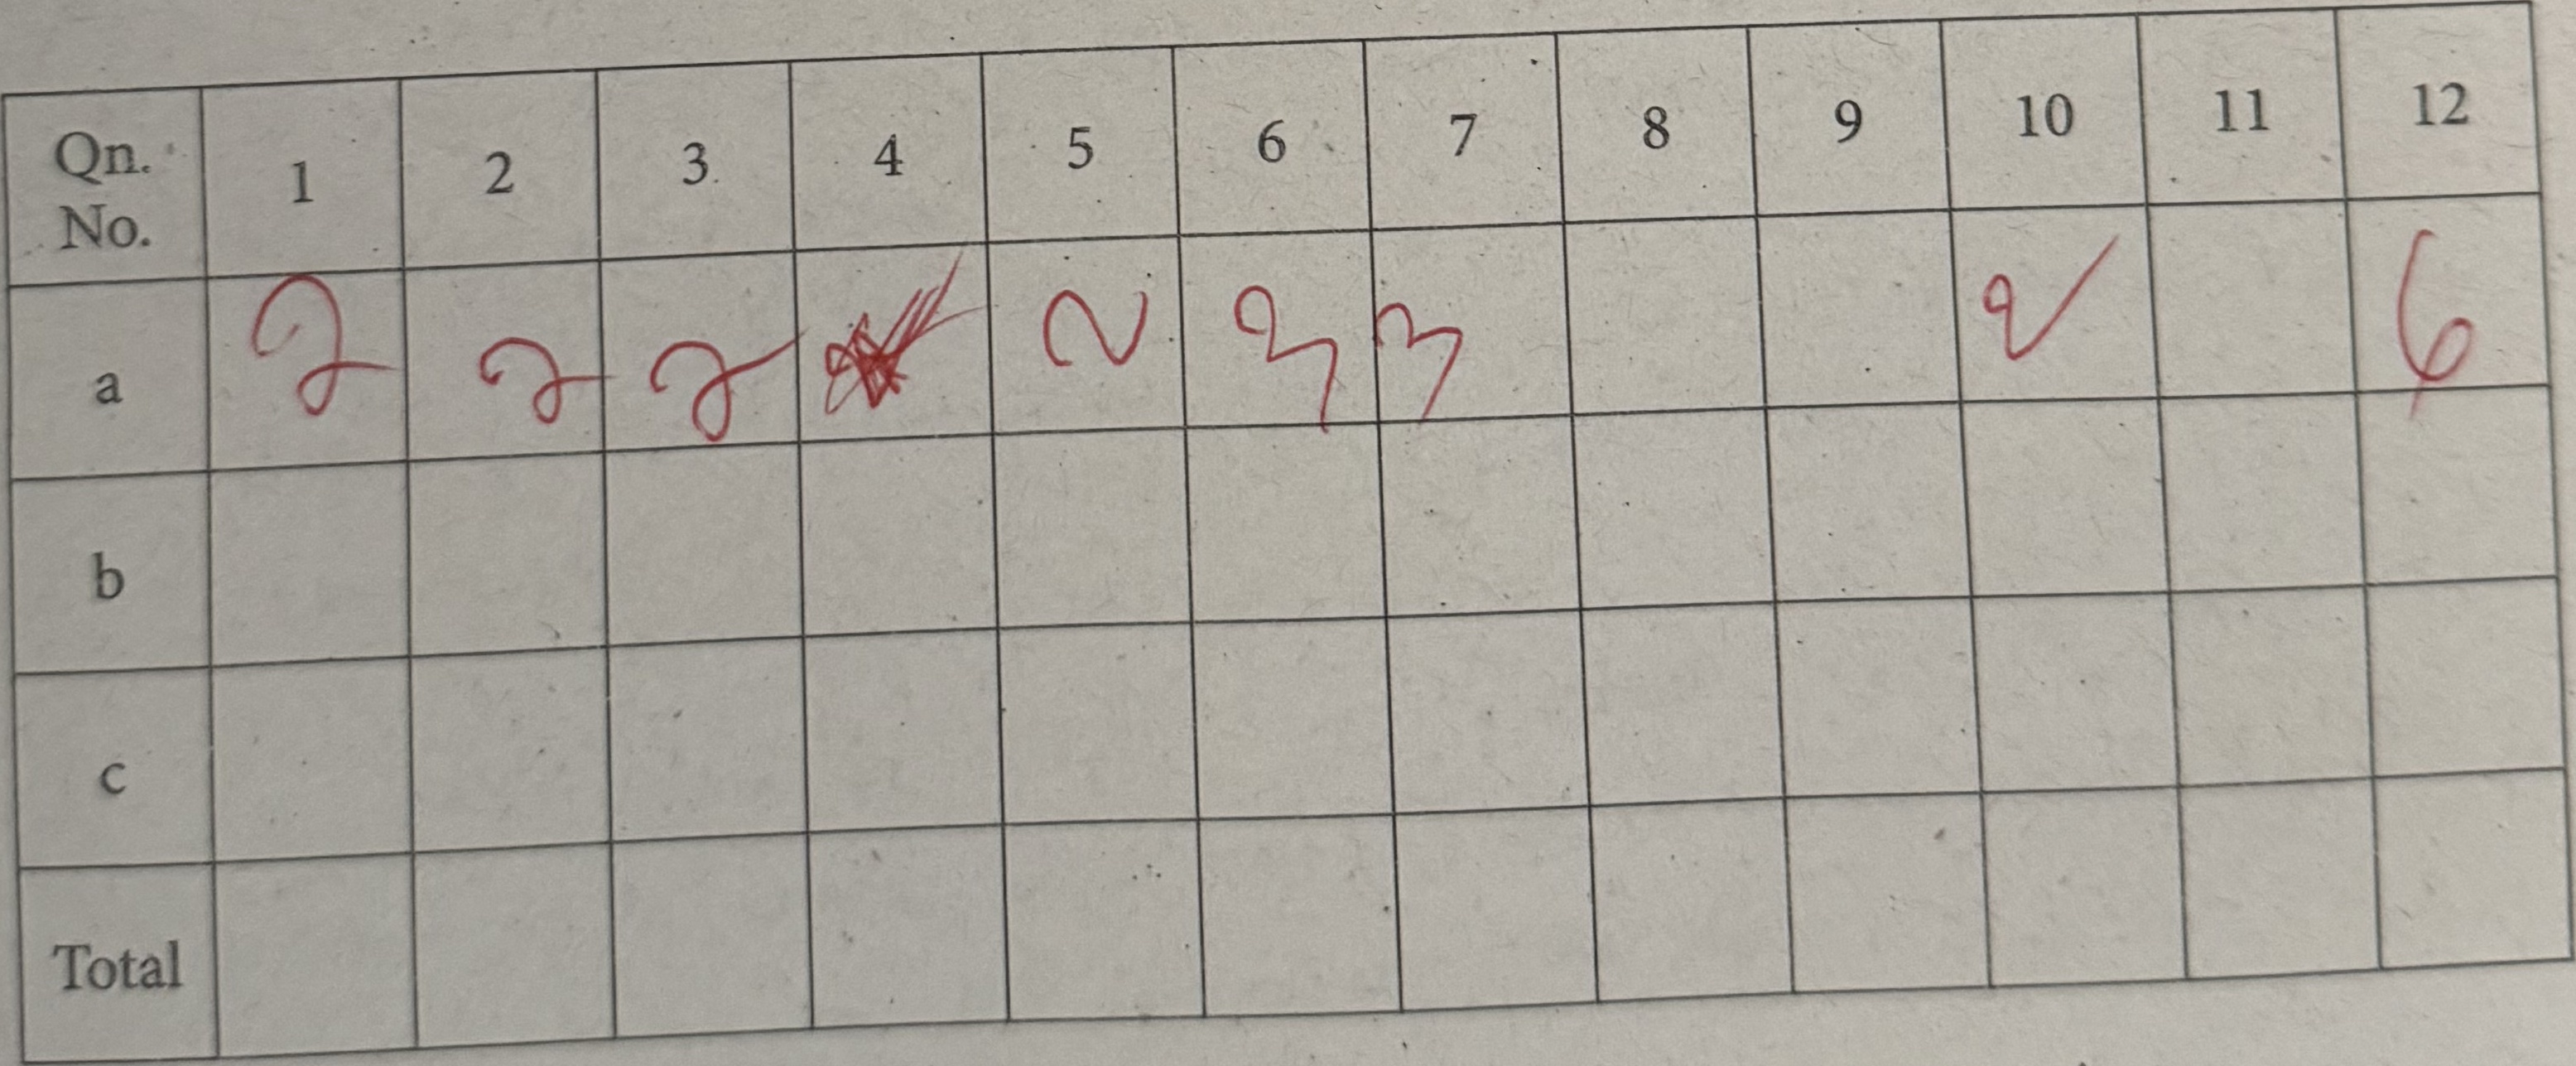 Qn. No. 1 2 3 4 5 6 7 8 9 10 11 12
a 2 2 2 2 3 3 2 6
b
c
Total